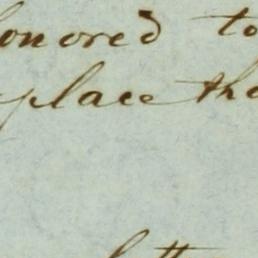 honored to
place the